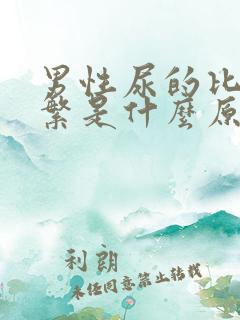 男性尿的比
繁是什麼原
利朗
未经同意禁止转载